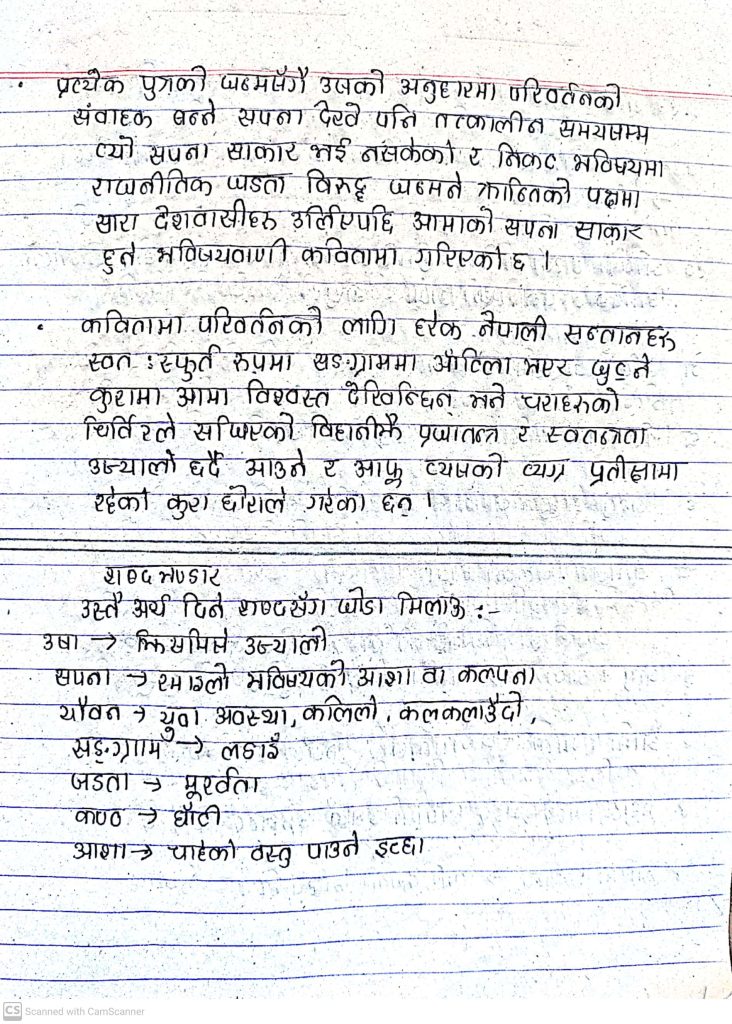 • प्रत्येक पुत्रको जन्मसँगै उसको अनुहारमा परिवर्तनको
संवाहक बन्ने सपना देखे पनि तत्कालीन समयसम्म
त्यो सपना साकार भई नसकेको र निकट भविष्यमा
राजनीतिक जडता विरुद्ध जन्मने क्रान्तिको पक्षमा
सारा देशवासीहरु उर्लिएपछि आमाको सपना साकार
हुने भविष्यवाणी कवितामा गरिएको छ ।
• कवितामा परिवर्तनको लागि हरेक नेपाली सन्तानहरु
स्वत : स्फुर्त रुपमा सङ्ग्राममा आँटिला भएर जुट्ने
कुरामा आमा विश्वस्त देखिन्छिन् भने चराहरुको
चिर्विरले सजिएको विहानीझै प्रजातन्त्र र स्वतन्त्रता
उज्यालो छर्दै आउने र आफू त्यसको व्यग्र प्रतीक्षामा
रहेको कुरा छोराले गरेका छन् ।
शब्द भण्डार
उस्तै अर्थ दिने शब्दसँग जोडा मिलाऊ :-
उषा → झिसमिसे उज्यालो
सपना → रमाइलो भविष्यको आशा वा कल्पना
यौवन → युवा अवस्था, कलिलो, कलकलाउँदो,
सङ्ग्राम → लडाइँ
जडता → मूर्खता
कण्ठ → घाँटी
आशा → चाहेको वस्तु पाउने इच्छा
CS Scanned with CamScanner